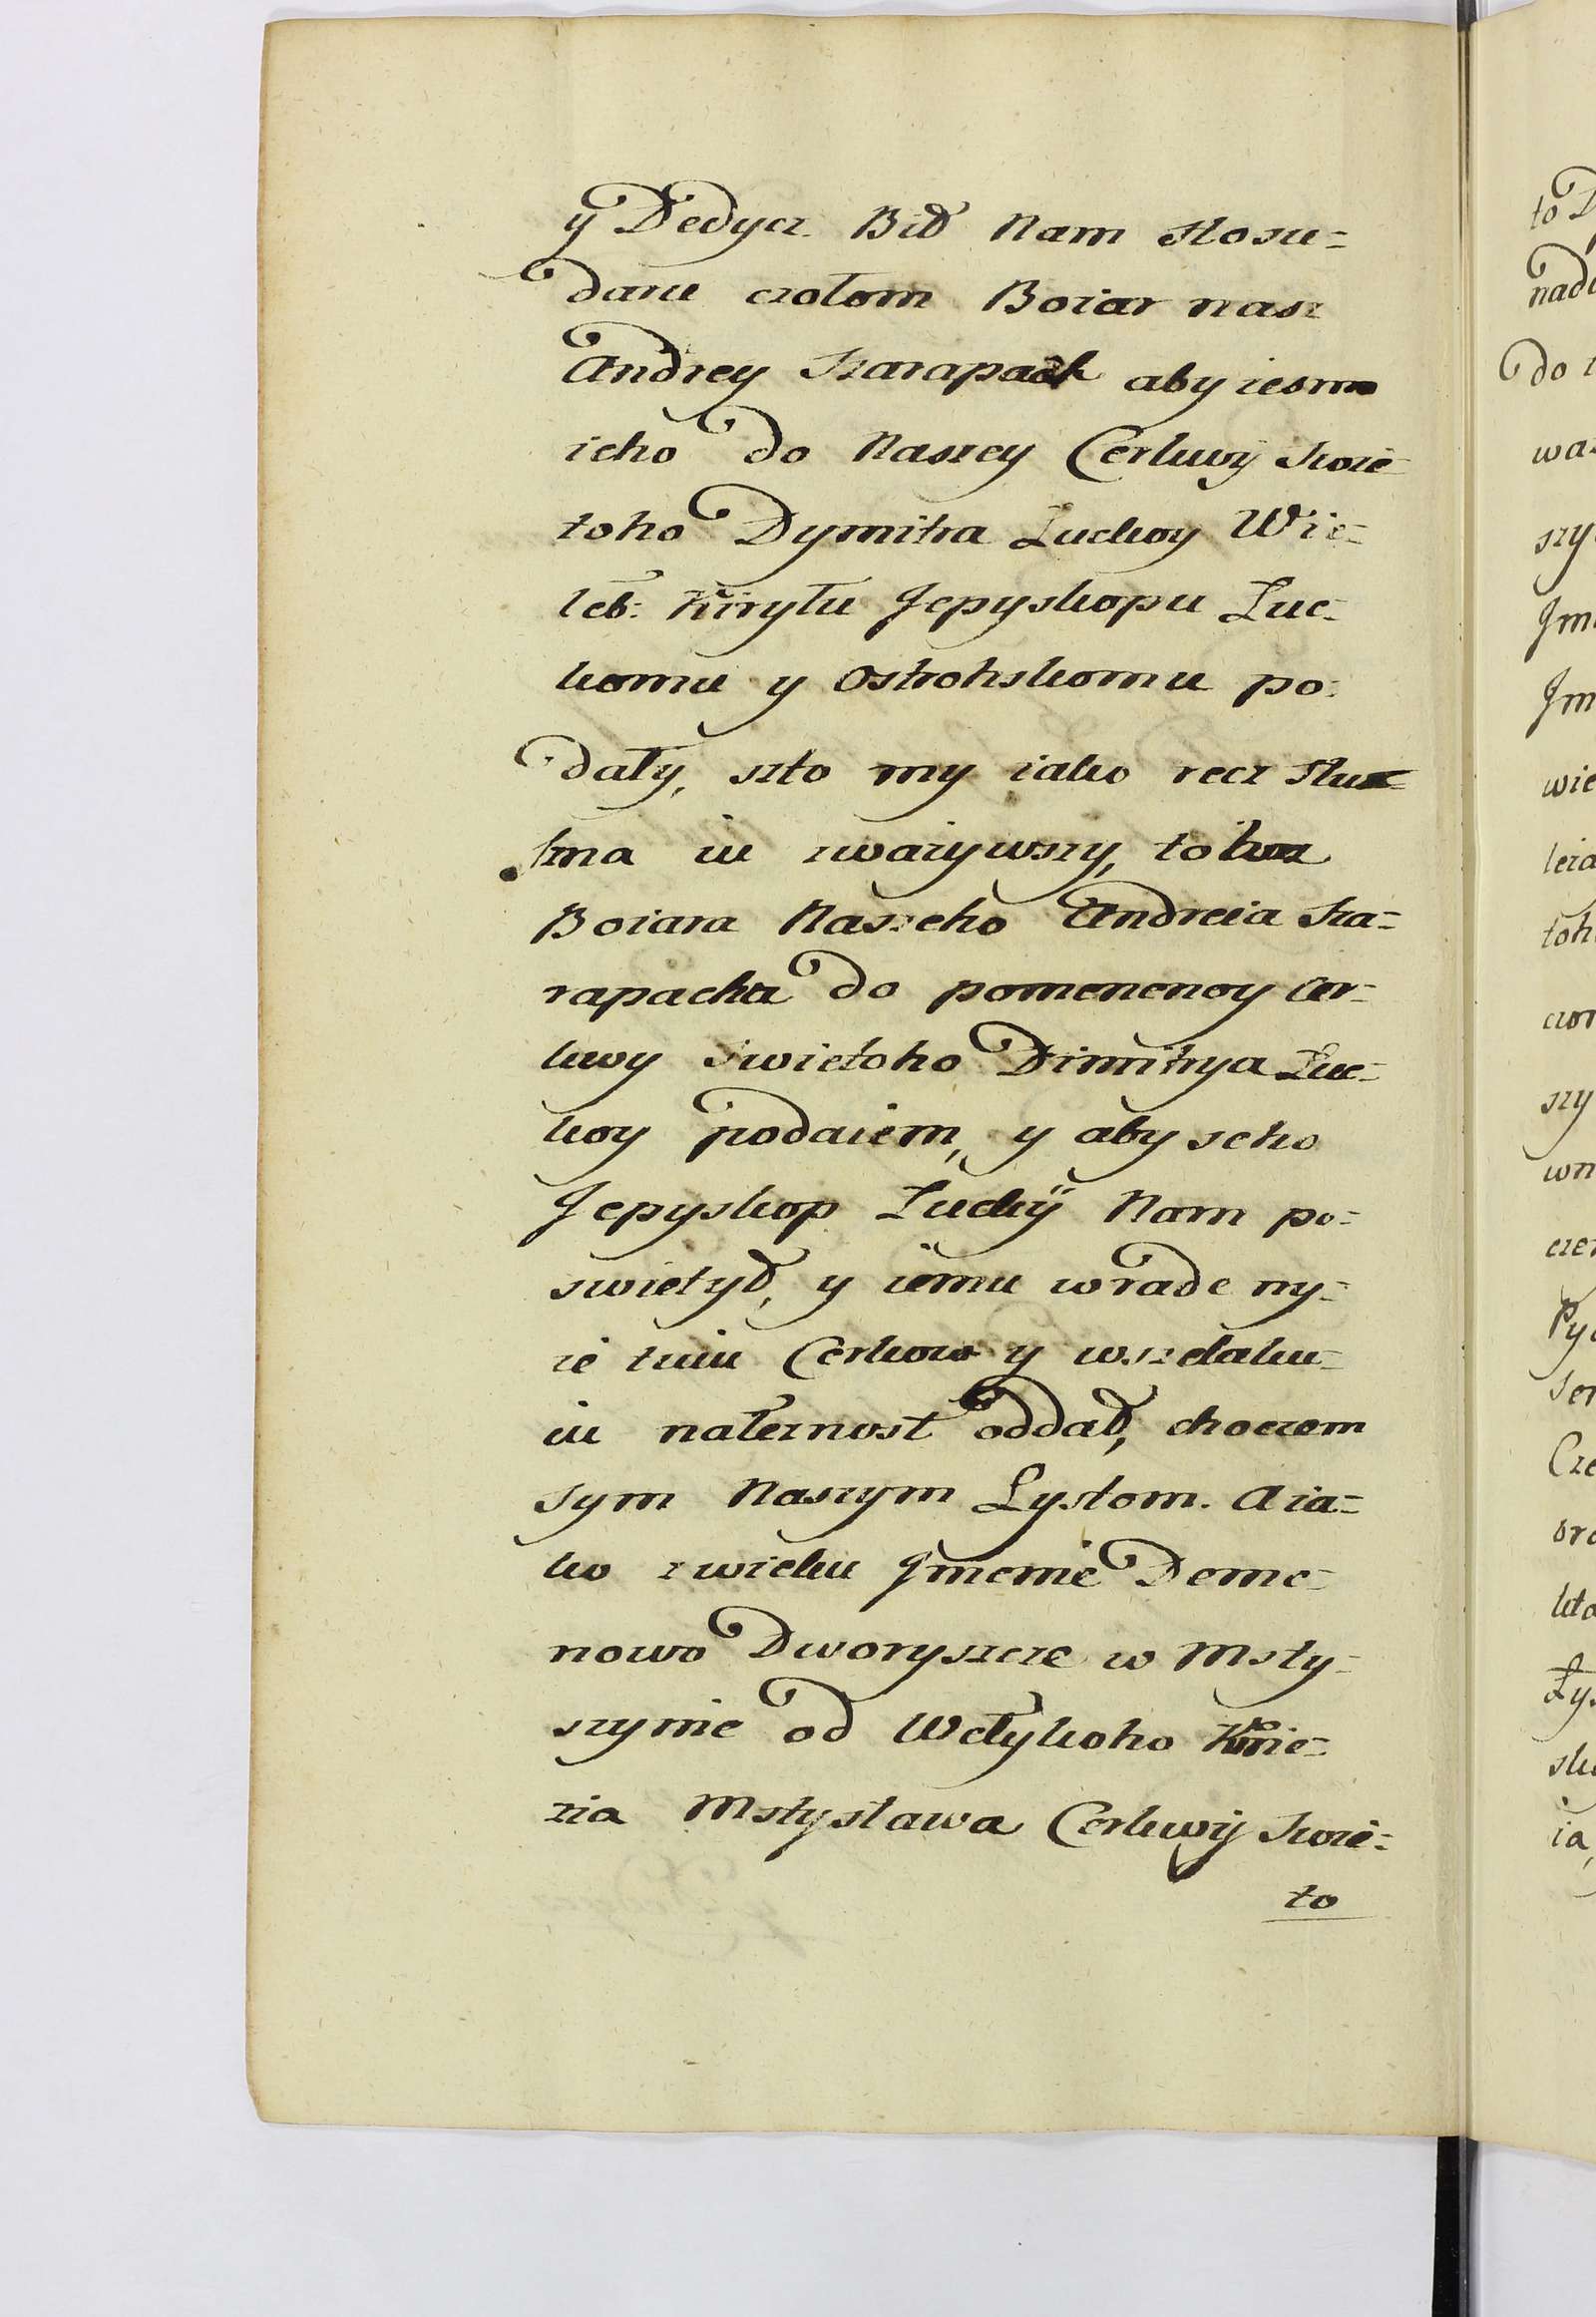 y Dedycz. Bił Nam Hosu=
daru czołom Boiar nasz
Andrey Szarapack aby iesmo
ieho do Naszey Cerkwy Swie
toho Dymitra Luckoy Wie=
leb: Kiryłu Jepyskopu Luc=
komu y Ostrohskomu po=
dały, szto my iako recz Słu
szna iu zwazywszy,
Boiara Naszeho Andreia Sza=
rapacka do pomenenoy Cer=
kwy Swietoho Dimitrya Luc=
koy podaiem, y aby seho
Jepyskop Luckÿ Nam po=
swietył, y iemu wrade ny=
że tuiu Cerkow y wszelaku=
iu należnost oddał, choczem
sym Naszym Lystom. A ia=
ko zwieku Jmenie Deme=
nowo Dworyszcze w Msty=
szynie od Wełykoho Knie=
zia Mstysława Cerkwÿ Swie=
to
to D
nad
do
wa
szy
Jm
Jm
wie
leża
toh
czor
szy
wn
czer
Py
Ser
Cze
oro
kto
Lys
sk
ia,